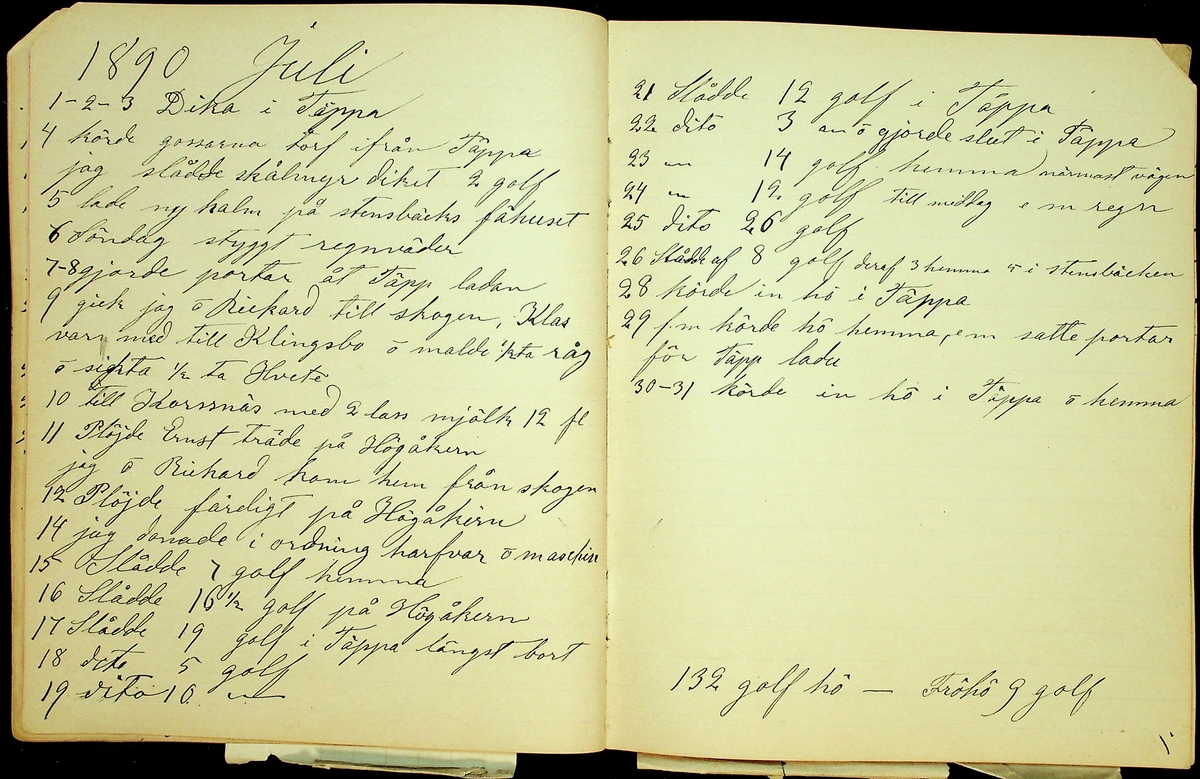 1890 Juli
1-2-3 Dika i Täppa
4 körde gossarna torf ifrån Täppa
jag slådde skålmyr diket 2 golf
5 lade ny halm på stensbäcks fähuset
6 Söndag styggt regnväder
7-8 gjorde portar åt Täpp ladan
9 gick jag ō Rickard till skogen, Klas
varn med till Klingsbo ō malde 1/2 ta råg
ō sigta 1/2 ta Hvete
10 till Korsnäs med 2 lass mjölk 12 fl
11 Plöjde Ernst träde på Högåkern
jag ō Rickard kom hem från skogen
12 Plöjde färdigt på Högåkern
14 jag donade i ordning harfvar ō maschin
15 Slådde 7 golf hemma
16 Slådde 16 1/2 golf på Högåkern
17 Slådde 19 golf i Täppa längst bort
18 dito 5 golf
19 dito 10 -"-
21 Slådde 12 golf i Täppa
22 dito 3 -"- ō gjorde slut i Täppa
23 -"- 14 golf hemma närmast vägen
24 -"- 12 golf till middag e m regn
25 dito 26 golf
26 Slådd af 8 golf deraf 3 hemma 5 i stensbäcken
28 körde in hö i Täppa
29 f.m körde hö hemma, e m satte portar
för Täpp ladu
30-31 körde in hö i Täppa ō hemma
132 golf hö — Fröhö 9 golf